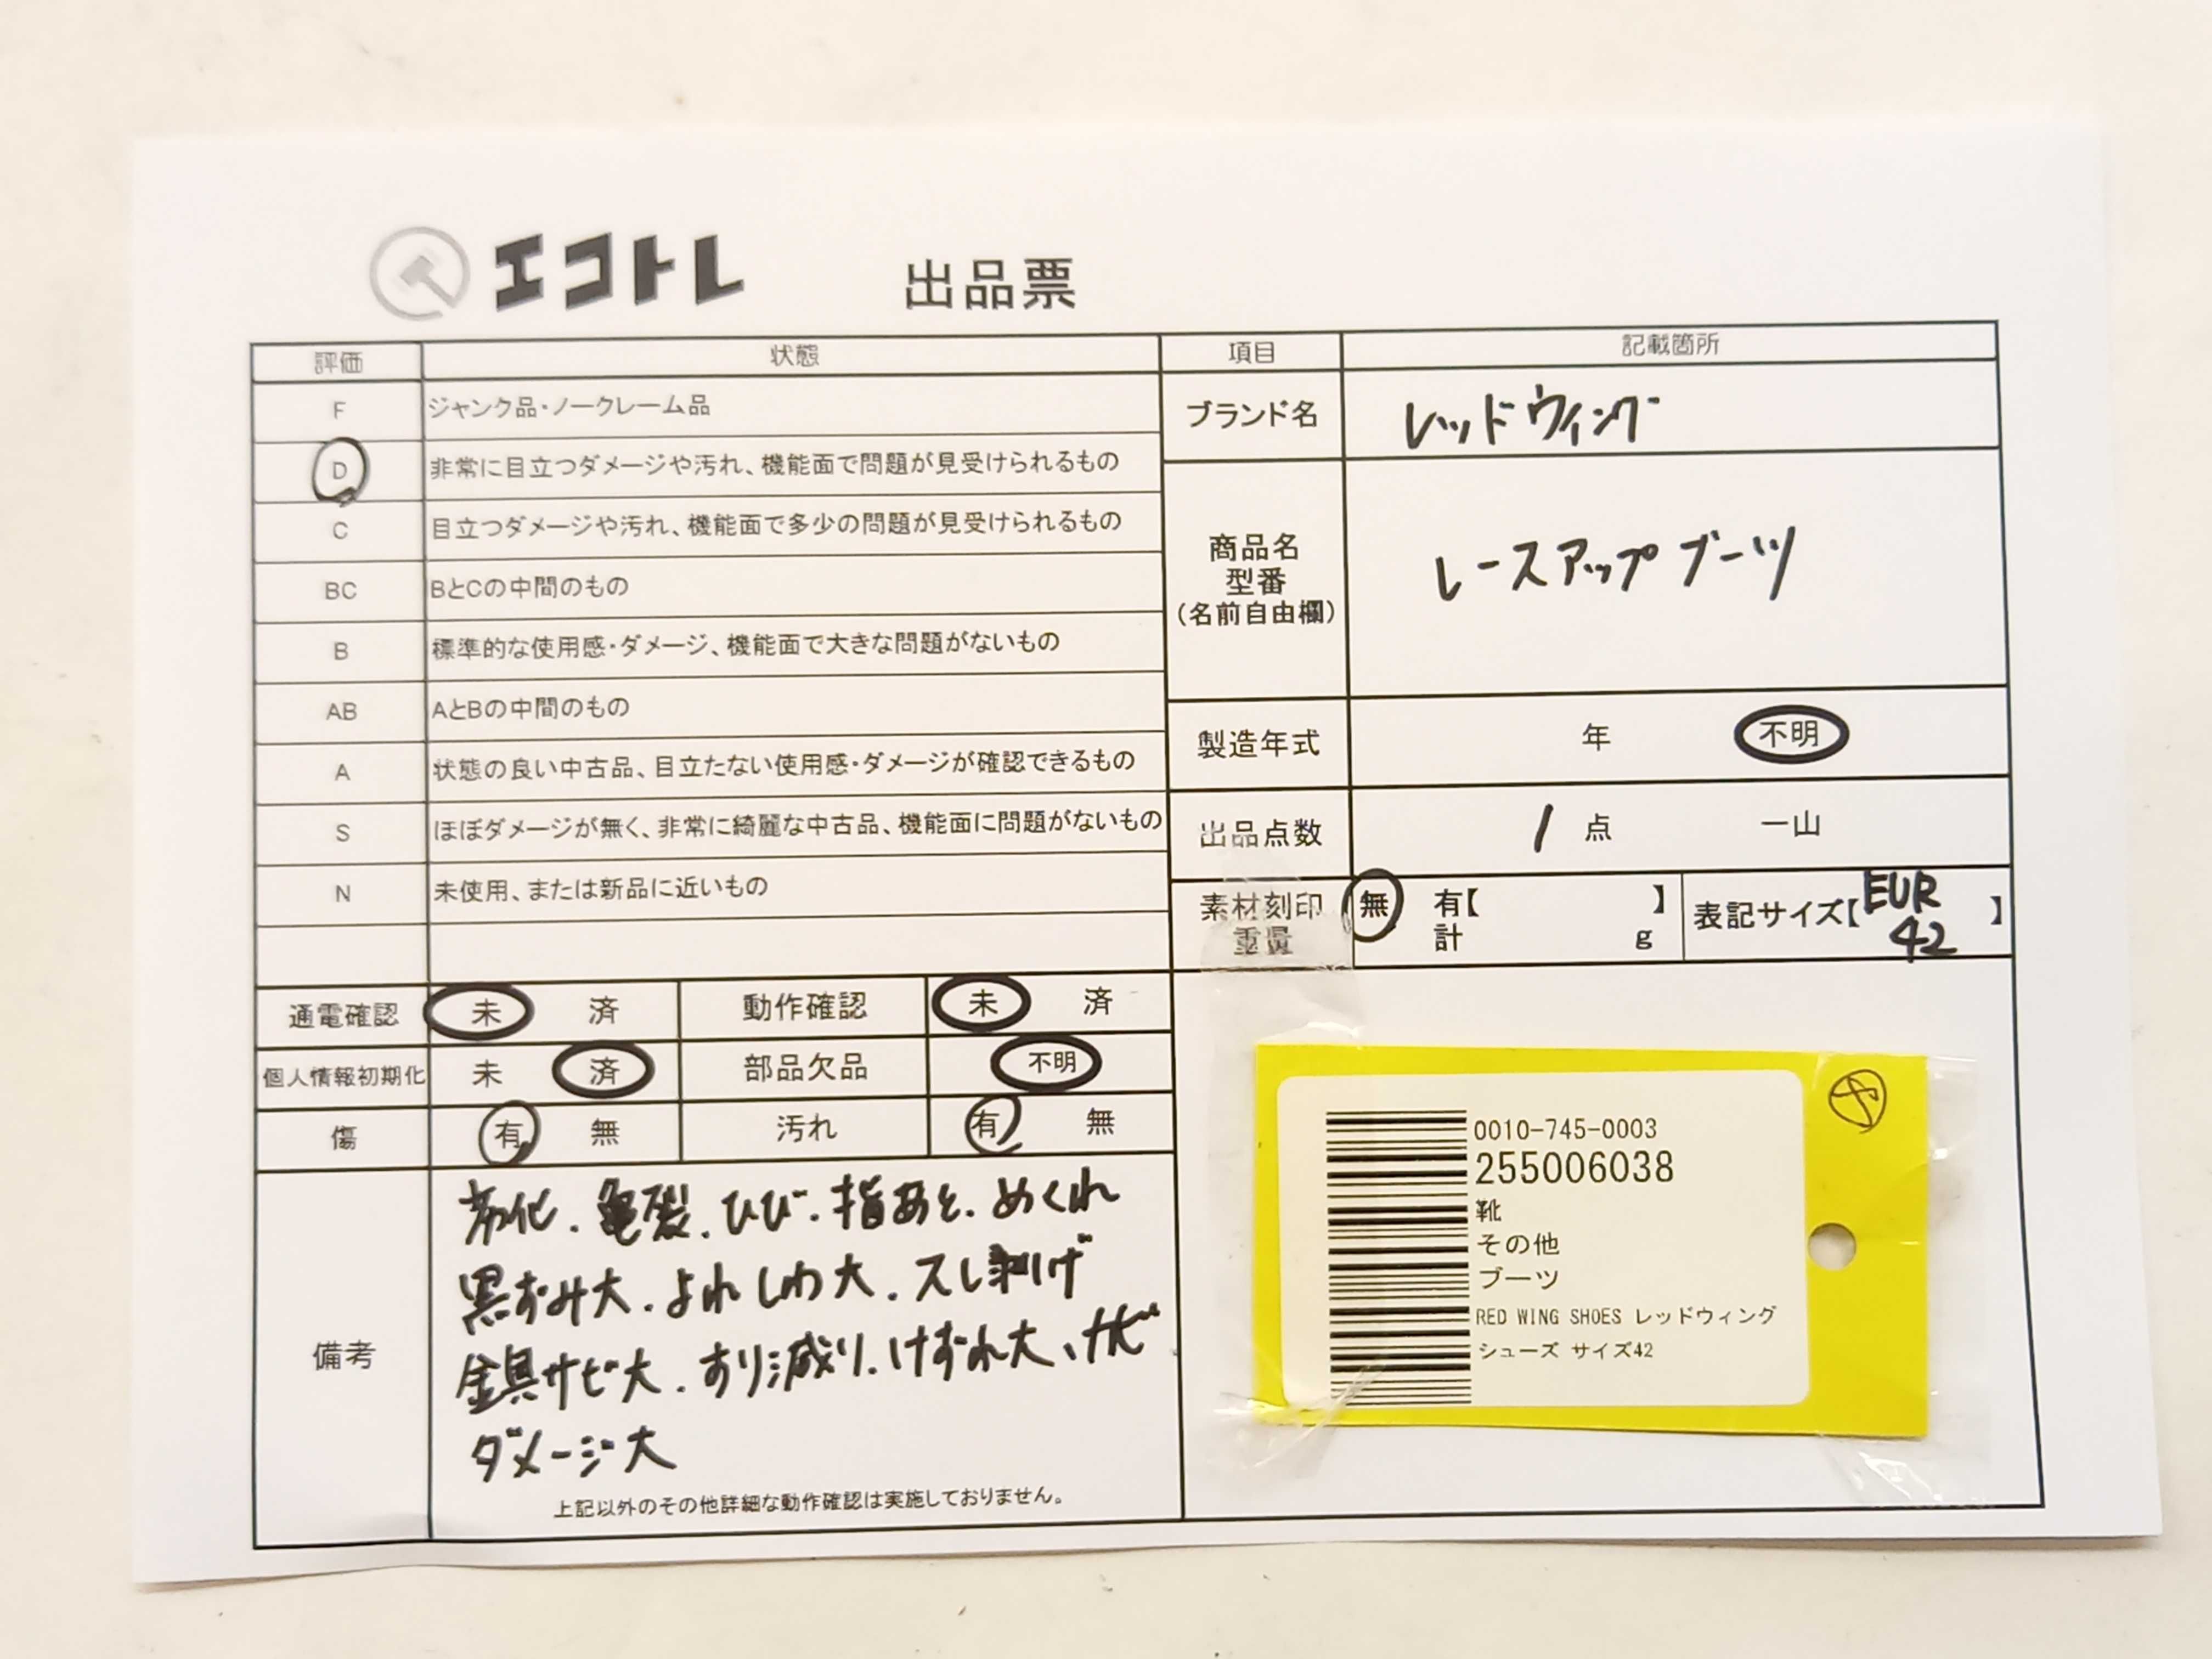 エコトレ 出品票
評価 状態
F ジャンク品・ノークレーム品
D 非常に目立つダメージや汚れ、機能面で問題が見受けられるもの
C 目立つダメージや汚れ、機能面で多少の問題が見受けられるもの
BC BとCの中間のもの
B 標準的な使用感・ダメージ、機能面で大きな問題がないもの
AB AとBの中間のもの
A 状態の良い中古品、目立たない使用感・ダメージが確認できるもの
S ほぼダメージが無く、非常に綺麗な中古品、機能面に問題がないもの
N 未使用、または新品に近いもの
通電確認 未 済 動作確認 未 済
個人情報初期化 未 済 部品欠品 不明
傷 有 無 汚れ 有 無
備考
亀裂.ひび.指あと.めくれ
黒ずみ大.よれしわ大.スレ剥げ
金具サビ大.すり減り.けずれ大、カビ
ダメージ大
上記以外のその他詳細な動作確認は実施しておりません。
項目 記載箇所
ブランド名 レッドウィング
商品名
型番
(名前自由欄)
レースアップブーツ
製造年式 年 不明
出品点数 1 点 一山
素材刻印 無 有【 】
重量 計 g
表記サイズ【EUR
42 】
0010-745-0003
255006038
靴
その他
ブーツ
RED WING SHOES レッドウィング
シューズ サイズ42